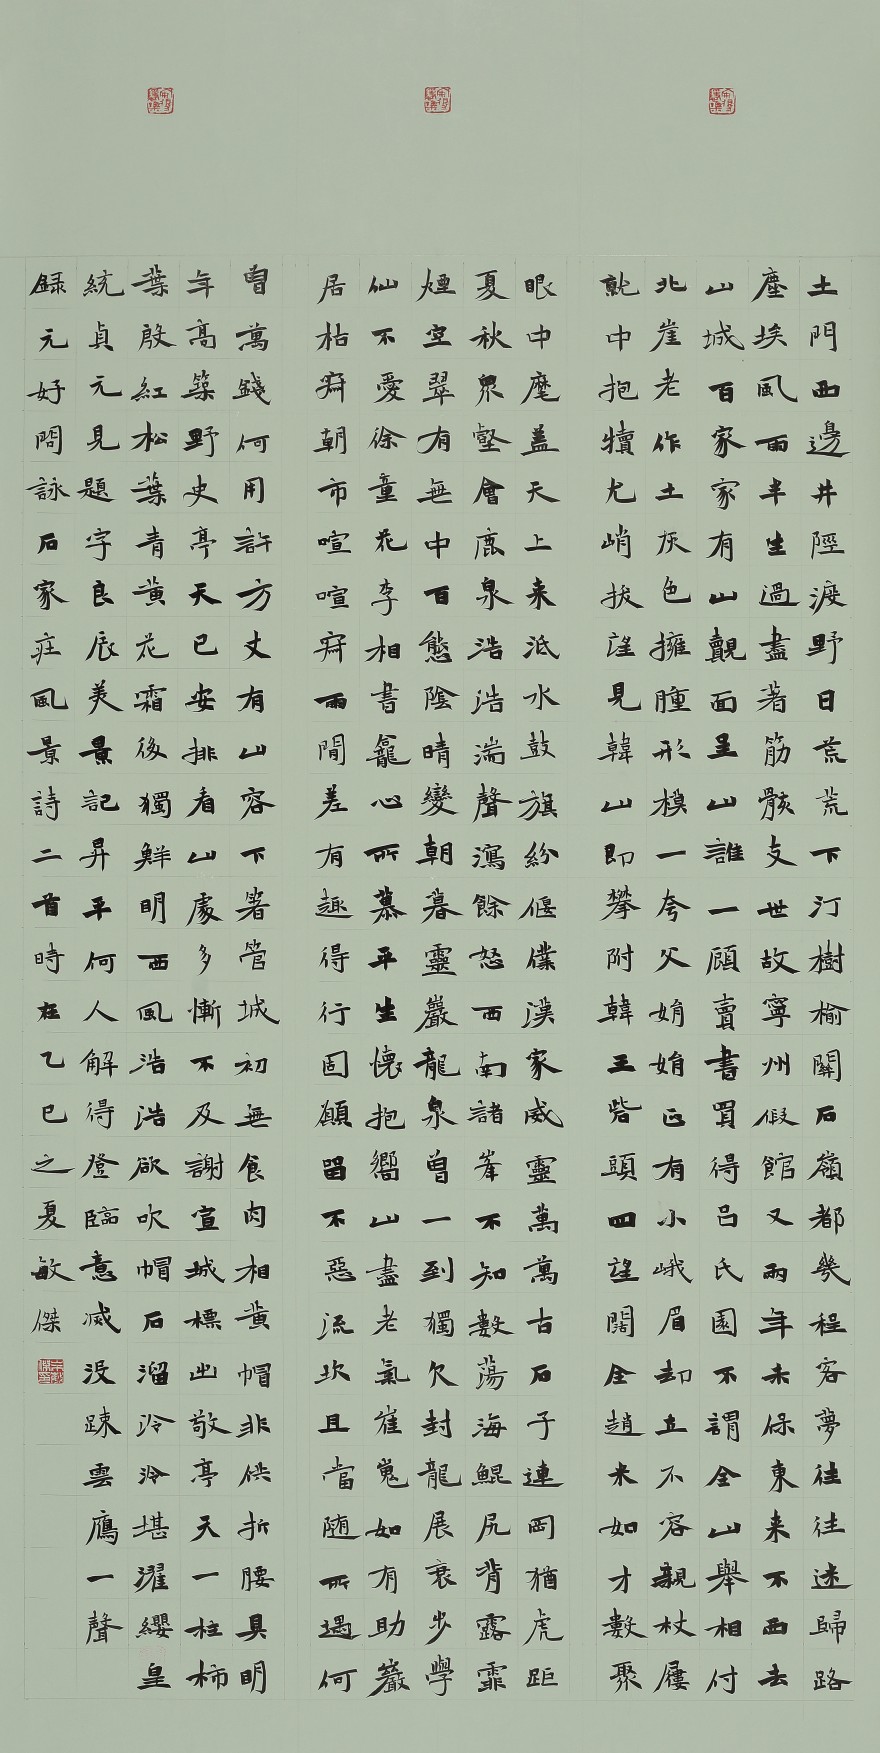 土門西邊井陘渡野日荒荒下汀樹榆關石嶺都幾程客夢往往迷歸路
塵埃風雨半生過盡著筋骸支世故寧州假館又兩年未保東来不西去
山城百家家有山覿面呈山誰一顧賣書買得呂氏園不謂全山舉相付
北崖老作土灰色擁腫形模一夸父娟娟正有小峨眉却立不容親杖屨
就中抱犢尤峭拔望見韓山即攀附韓王砦頭四望闊全趙米如才數聚
眼中麾盖天上来泜水鼓旗紛偃僕漢家威靈萬萬古石子連岡猶虎距
夏秋衆壑會鹿泉浩浩湍聲瀉餘怒西南諸峯不知數蕩海鯤尻背露霏
煙空翠有無中百態陰晴變朝暮靈巖龍泉曾一到獨欠封龍展衰步學
仙不愛徐童花李相書龕心所慕平生懷抱嚮山盡老氣崔嵬如有助巖
居枯寂朝市喧喧寂兩間差有趣得行固願留不惡流坎且當随所遇何
曾萬錢何用許方丈有山容下箸管城初無食肉相黄帽非供折腰具明
年高築野史亭天已安排看山處多慚不及謝宣城標出敬亭天一柱柿
葉殷紅松葉青黄花霜後獨鮮明西風浩浩欲吹帽石溜泠泠堪濯纓皇
統貞元見題字良辰美景記昇平何人解得登臨意滅没疎雲鴈一聲
録元好問詠石家庄風景詩二首時在乙巳之夏敏傑